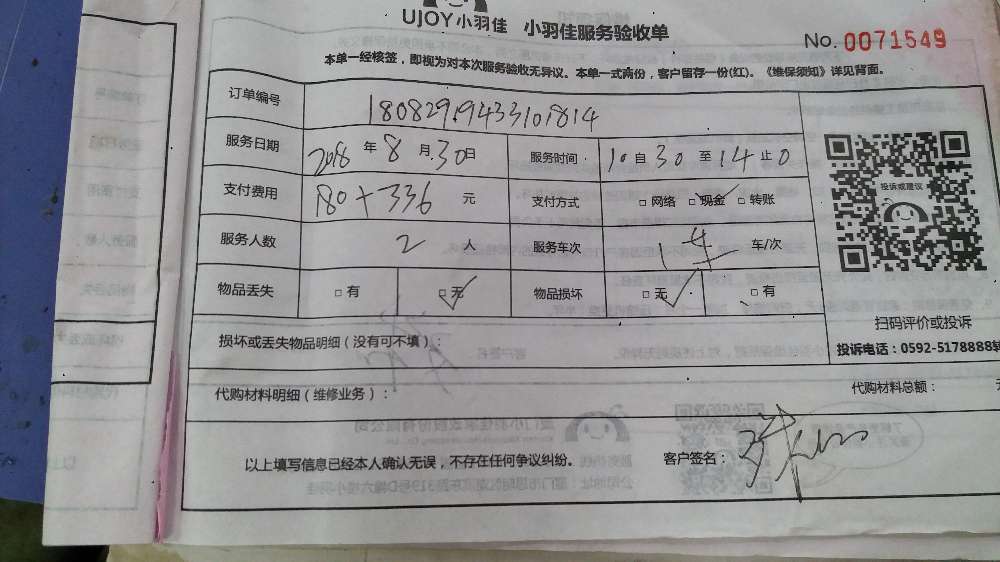 UJOY小羽佳 小羽佳服务验收单
No. 0071549
本单一经核签，即视为对本次服务验收无异议。本单一式两份，客户留存一份(红)。《维保须知》详见背面。
订单编号 18082919433101814
服务日期 2018 年 8 月 30 日 服务时间 10 自 30 至 14 止 0
支付费用 180+336 元 支付方式 □ 网络 □ 现金 □ 转账
服务人数 2 人 服务车次 1车 车/次
物品丢失 □ 有 □ 无 物品损坏 □ 无 □ 有
投诉或建议
扫码评价或投诉
投诉电话：0592-5178888转
损坏或丢失物品明细（没有可不填）：
代购材料明细（维修业务）： 代购材料总额：
以上填写信息已经本人确认无误，不存在任何争议纠纷。 客户签名：